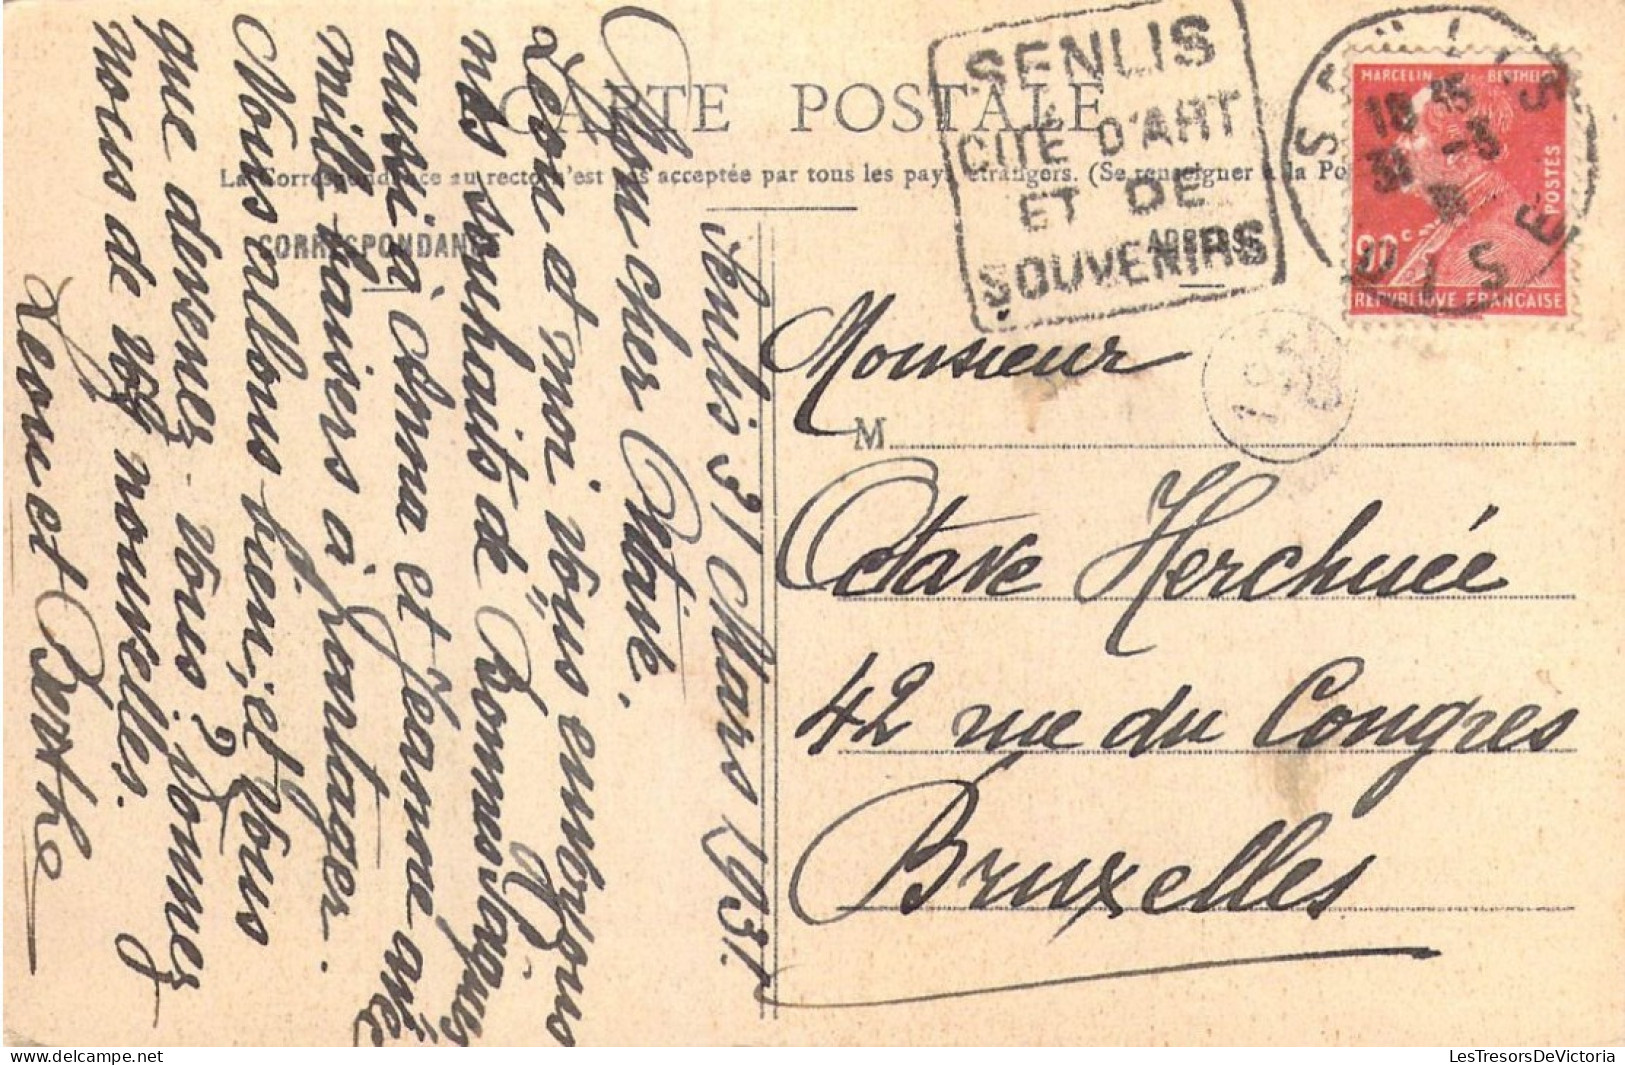 CARTE POSTALE
La Correspondance au recto n'est pas acceptée par tous les pays étrangers. (Se renseigner à la Po
CORRESPONDANCE
ADRESSE
SENLIS
CITÉ D'ART
ET DE
SOUVENIRS
SENLIS
OISE
18 15
31 -3
31
MARCELIN BERTHELOT
POSTES
90c
REPUBLIQUE FRANÇAISE
Senlis 31 Mars 1931.
Mon cher Octave.
Léon et moi vous envoyons
nos souhaits de "Bonnes Pâques"
aussi à Anna et Jeanne avec
mille baisers à partager.
Nous allons bien, et vous
que devenez-vous? Donnez
nous de vos nouvelles.
Léon et Berthe
Monsieur
M
Octave Herchuée
42 rue du Congres
Bruxelles
LesTresorsDeVictoria
delcampe.net